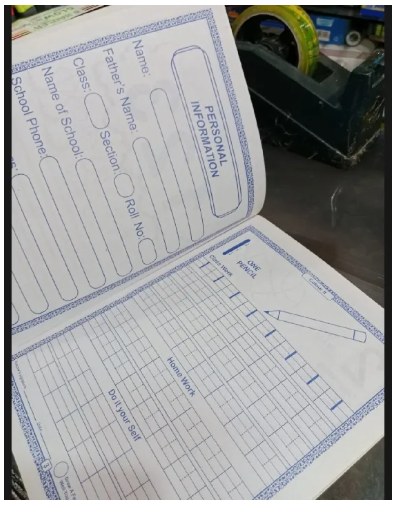 PERSONAL
INFORMATION
Name:
Father's Name:
Class:
Section:
Roll No:
Name of School:
School Phone:
ONE
PENCIL
Class Work
Home Work
Do it your Self